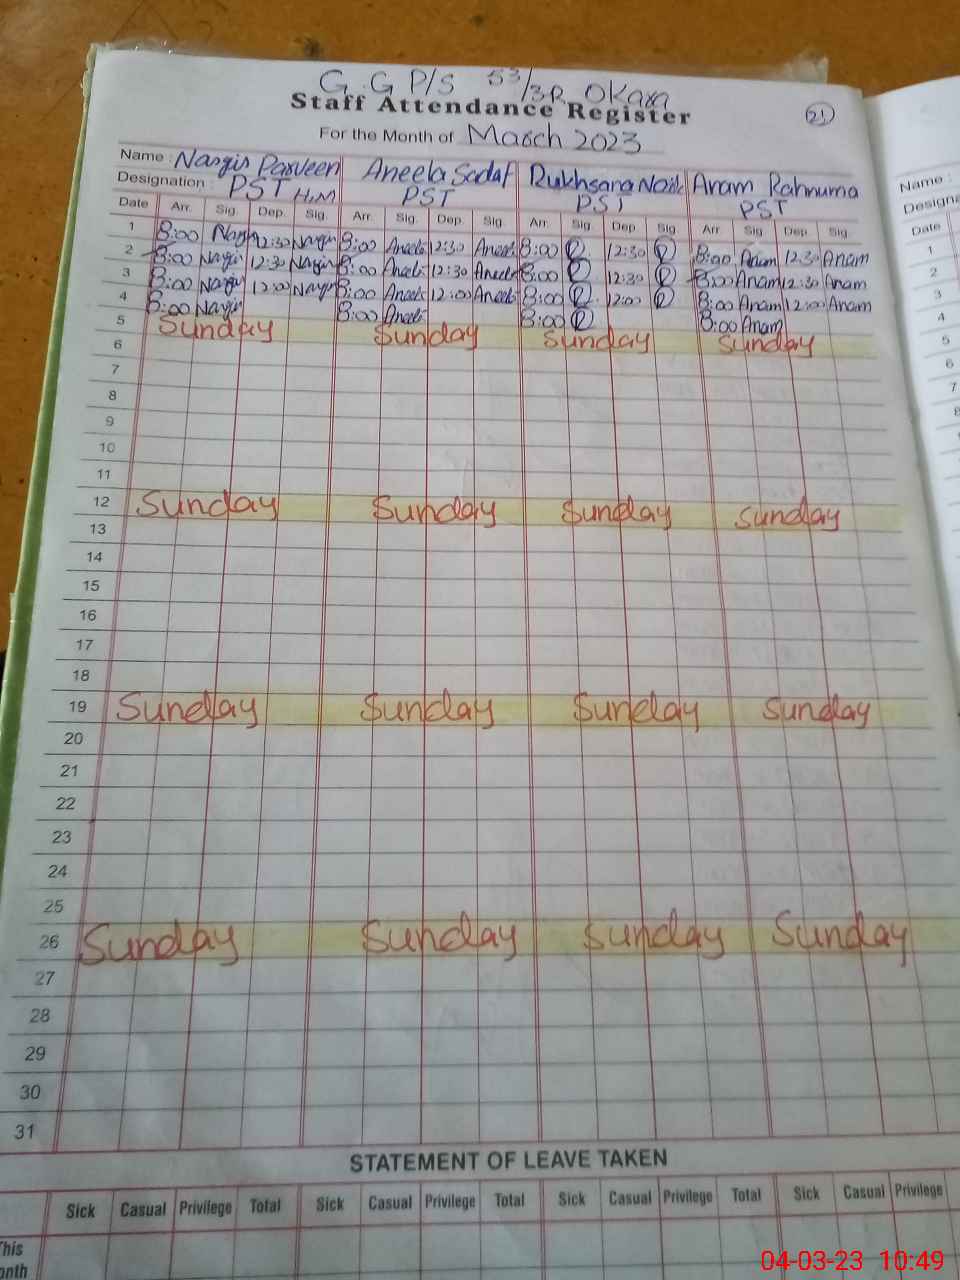 G.G P/S 53/3R Okara
Staff Attendance Register
21
For the Month of March 2023
Name : Nargis Parveen Aneela Sadaf Rukhsana Anam Rahnuma
Designation : PST H.M PST PST PST
Date Arr. Sig. Dep. Sig. Arr. Sig. Dep. Sig. Arr. Sig. Dep. Sig. Arr. Sig. Dep. Sig.
1 8:00 Nargis 12:30 Nargis 8:00 Aneela 12:30 Aneela 8:00 R 12:30 R 8:00 Anam 12:30 Anam
2 8:00 Nargis 12:30 Nargis 8:00 Aneela 12:30 Aneela 8:00 R 12:30 R 8:00 Anam 12:30 Anam
3 8:00 Nargis 12:00 Nargis 8:00 Aneela 12:00 Aneela 8:00 R 12:00 R 8:00 Anam 12:00 Anam
4 8:00 Nargis 8:00 Aneela 8:00 R 8:00 Anam
5 Sunday Sunday Sunday Sunday
6
7
8
9
10
11
12 Sunday Sunday Sunday Sunday
13
14
15
16
17
18
19 Sunday Sunday Sunday Sunday
20
21
22
23
24
25
26 Sunday Sunday Sunday Sunday
27
28
29
30
31
STATEMENT OF LEAVE TAKEN
Sick Casual Privilege Total Sick Casual Privilege Total Sick Casual Privilege Total Sick Casual Privilege
This
onth
Name :
Designa
Date
1
2
3
4
5
6
7
8
04-03-23 10:49